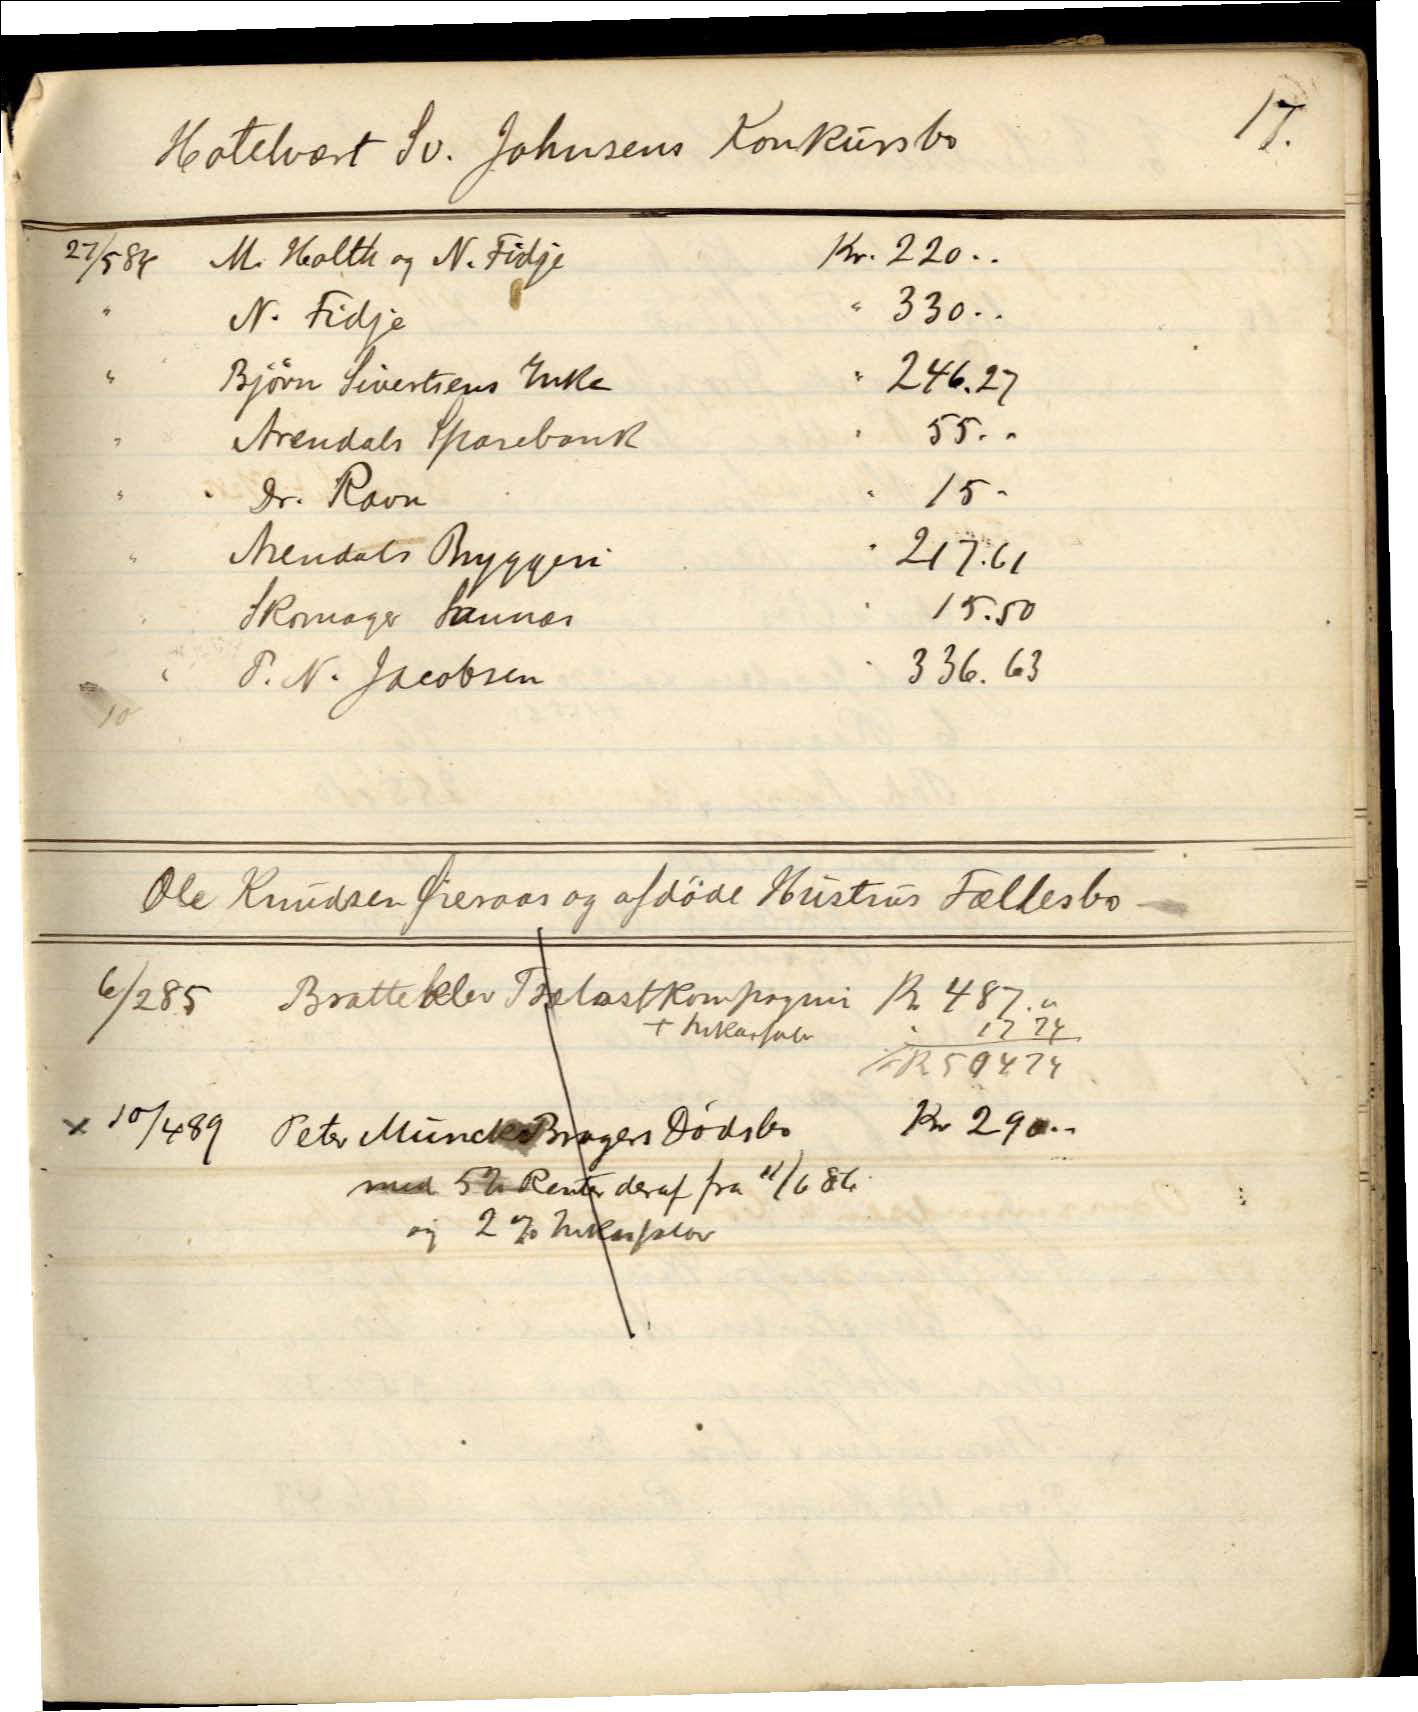 17.
Hotelvært Sv. Johnsens Konkursbo
27/5 84 M. Holth og N. Fidje Kr. 220..
" N. Fidje " 330..
" Björn Sivertsens Enke " 246.27
" Arendals Sparebank " 55..
" Dr. Ravn " 15-
" Arendals Bryggeri " 217.61
" Skomager Sannæs " 15.50
" P. N. Jacobsen " 336.63
10
Ole Knudsen Øieraas og afdöde Hustrus Fællesbo
6/2 85 Bratteklev Trælastkompagni Kr 487."
+ Inkassalr " 17 74
Kr 504 74
x 10/4 89 Peter Munck Brøgers Dödsbo Kr 290..
med 5% Renter deraf fra 11/6 86
og 2% Inkassalær